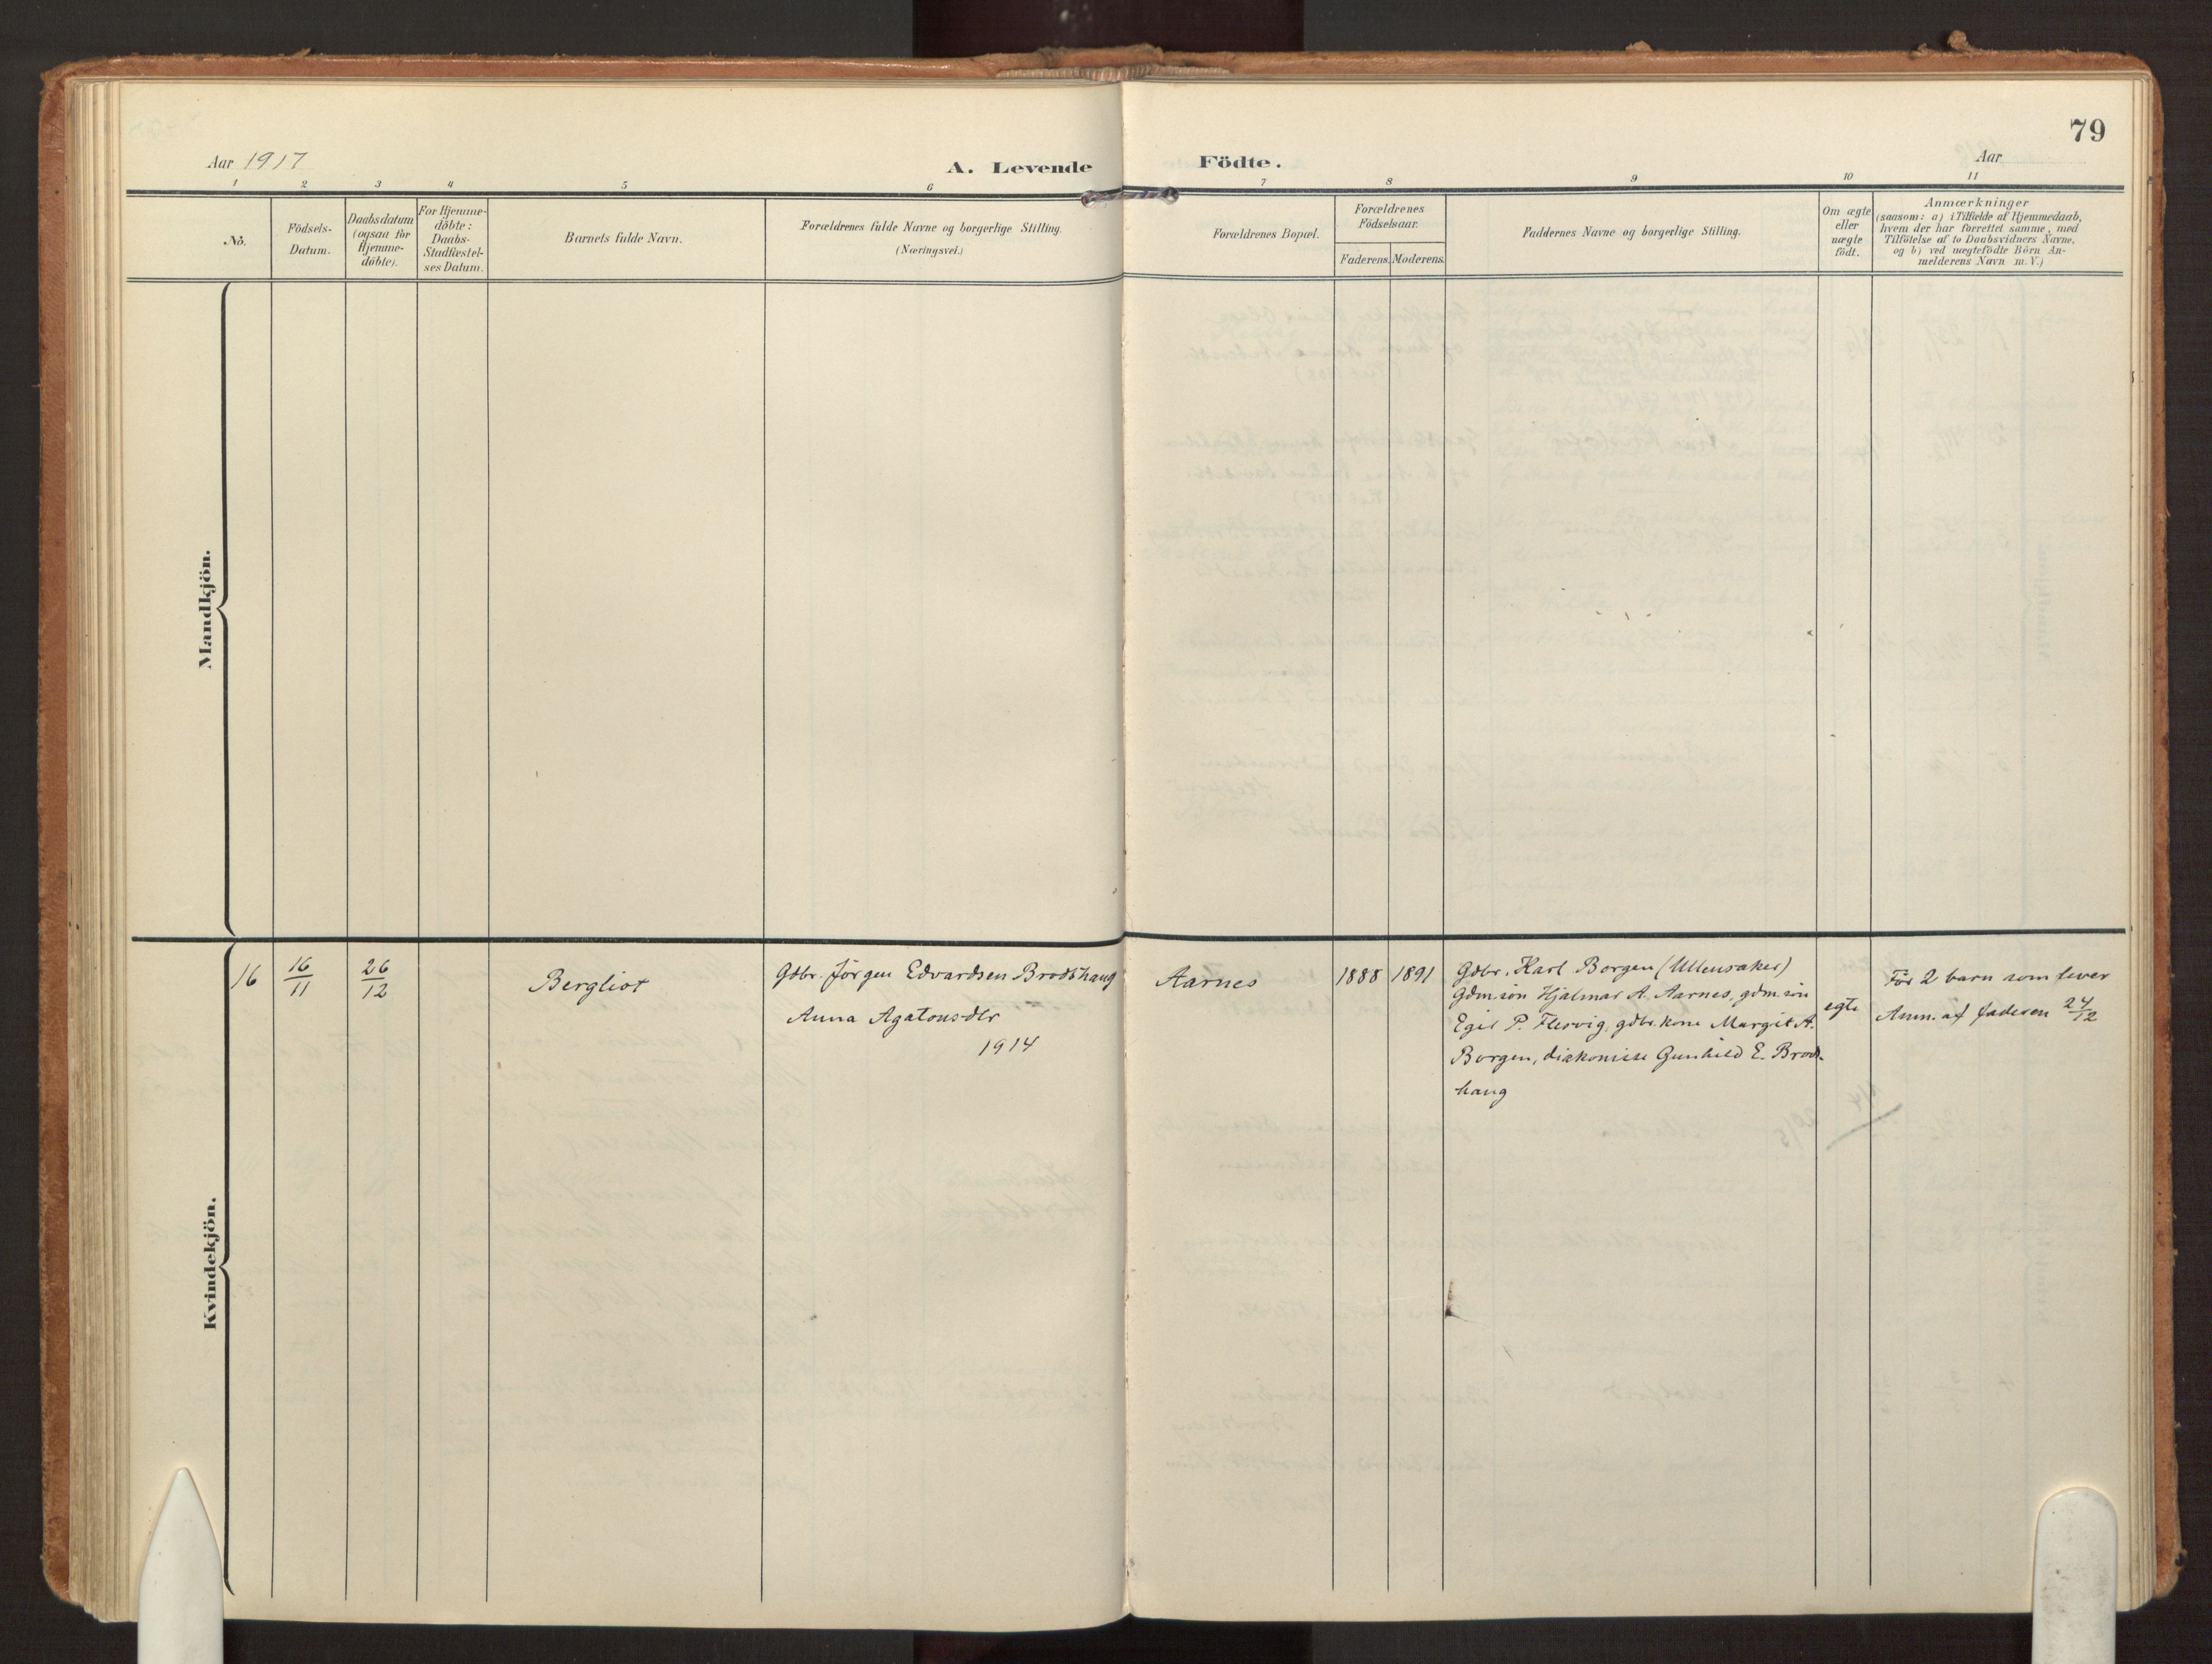 79
Aar 1917
A. Levende Födte.
Aar
1 2 3 4 5 6 7 8 9 10 11
No.
Födsels-
Datum.
Daabsdatum
(ogsaa for
Hjemme-
döbte).
For Hjemme-
döbte:
Daabs-
Stadfæstel-
ses Datum.
Barnets fulde Navn.
Forældrenes fulde Navne og borgerlige Stilling.
(Næringsvei.)
Forældrenes Bopæl.
Forældrenes
Födselsaar.
Faderens. Moderens.
Faddernes Navne og borgerlige Stilling.
Om ægte
eller
uægte
födt.
Anmærkninger
(saasom: a) i Tilfælde af Hjemmedaab,
hvem der har forrettet samme, med
Tilföielse af to Daabsvidners Navne,
og b) ved uægtefödte Börn An-
melderens Navn m. V.)
Mandkjön.
Kvindekjön.
16
16/11
26/12
Bergliot
Gdbr. Jörgen Edvardsen Brodshaug
Anna Agatonsdtr
1914
Aarnes
1888
1891
Gdbr. Karl Borgen (Ullensaker)
Gdm.sön Hjalmar A. Aarnes, gdm.sön
Egil P. Flesvig, gdbr.kone Margit A.
Borgen, diakonisse Gunhild E. Brods-
haug
egte
För 2 barn som lever
Anm. af faderen 24/12